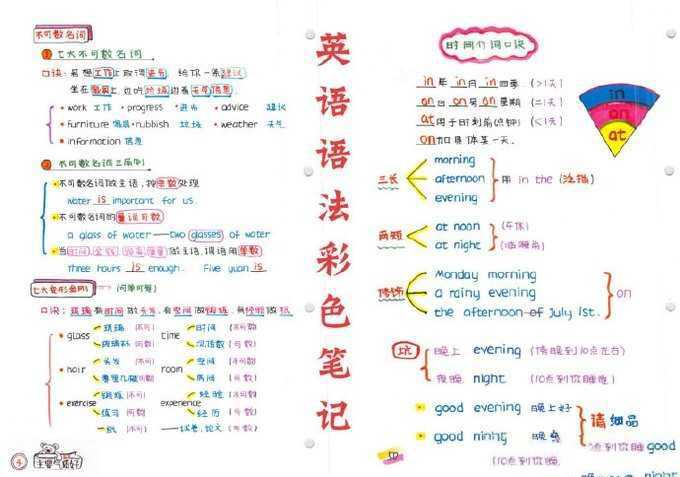 不可数名词
① 七大不可数名词
口诀: 若想工作上取得进步 给你一条建议
坐在家具上,边扔垃圾边看天气信息
• work 工作 • progress 进步 • advice 建议
• furniture 家具 • rubbish 垃圾 • weather 天气
• information 信息
② 不可数名词三原则
• 不可数名词做主语,按单数处理
water is important for us.
• 不可数名词的量词可数
a glass of water — two glasses of water
当时间,金钱,做主语,谓语用单数
Three hours is enough. Five yuan is
七大变形金刚
口诀: 玻璃有时间做头发,有空间做锻炼,有经验做纸
• glass 玻璃 (不可) time 时间 (不可数)
玻璃杯 (可数) 次/倍数 (可数)
• hair 头发 (不可) room 空间 (不可数)
房间 (可数)
• exercise 锻炼 (不可) experience 经验 (不可数)
练习 (可数) 经历 (可数)
纸 (不可) 试卷,论文 (可数)
4
英语语法彩色笔记
时间介词口诀
in 年 in 月 in 四季 (>1天)
on 日 on 周 on 星期 (=1天)
at 用于时刻前(点钟) (<1天)
on 加具体某一天.
in
on
at
三长
morning
afternoon
evening
用 in the
两短
at noon (午休)
at night
修饰
Monday morning
a rainy evening
the afternoon of July 1st.
on
坑
晚上 evening (傍晚到10点左右)
夜晚 night (10点到你睡觉)
good evening 晚上好
good night 晚安
请细品
点到你睡 good
(10点到你睡